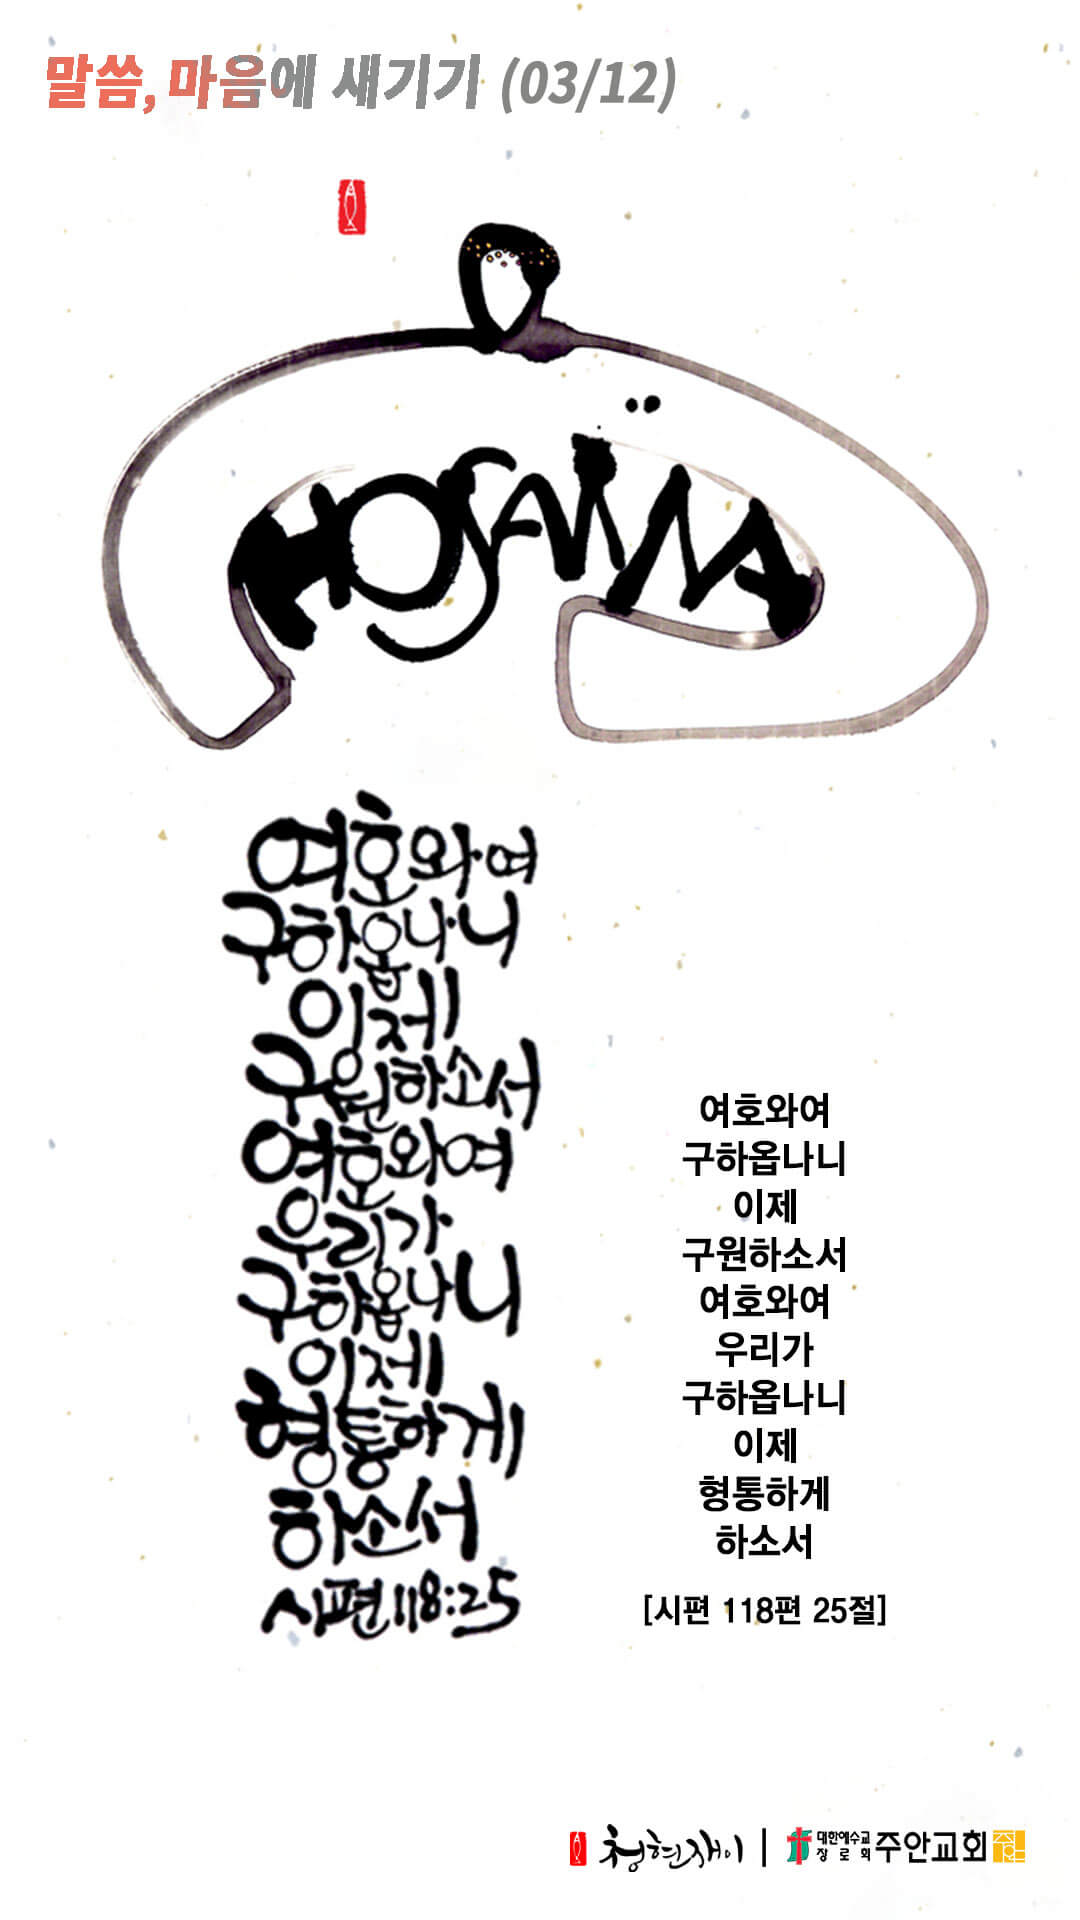 말씀, 마음에 새기기 (03/12)
HOSANNA
여호와여
구하옵나니
이제
구원하소서
여호와여
우리가
구하옵나니
이제
형통하게
하소서
시편 118:25
여호와여
구하옵나니
이제
구원하소서
여호와여
우리가
구하옵나니
이제
형통하게
하소서
[시편 118편 25절]
청현재이 | 대한예수교 장로회 주안교회